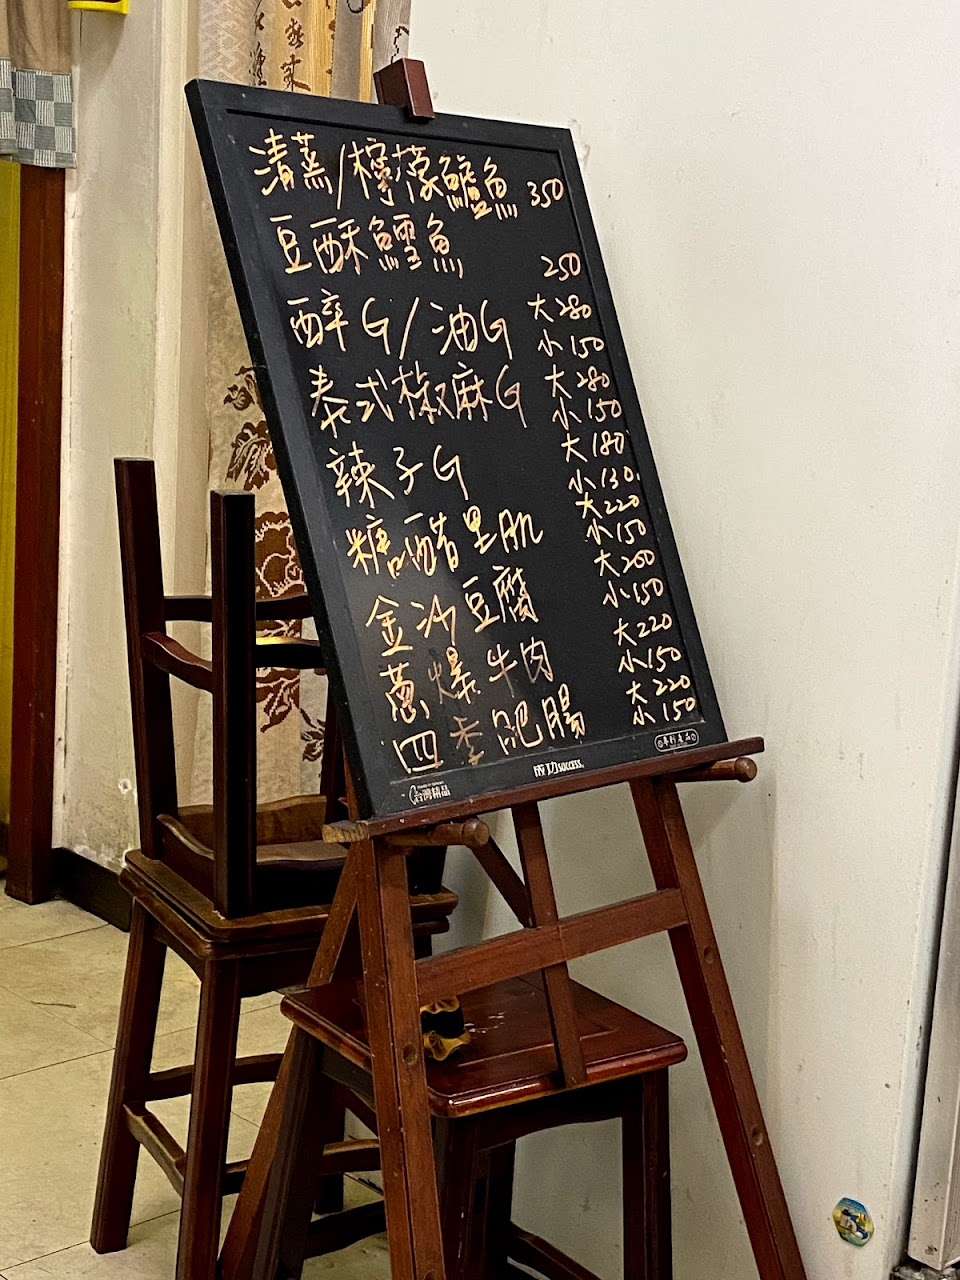 清蒸/檸檬鱸魚 350
豆酥鱈魚 250
醉G/油G 大280
小150
泰式椒麻G 大280
小150
辣子G 大180
小130
糖醋里肌 大220
小150
金沙豆腐 大200
小150
蔥爆牛肉 大220
小150
四季肥腸 大220
小150
成功 success
台灣精品